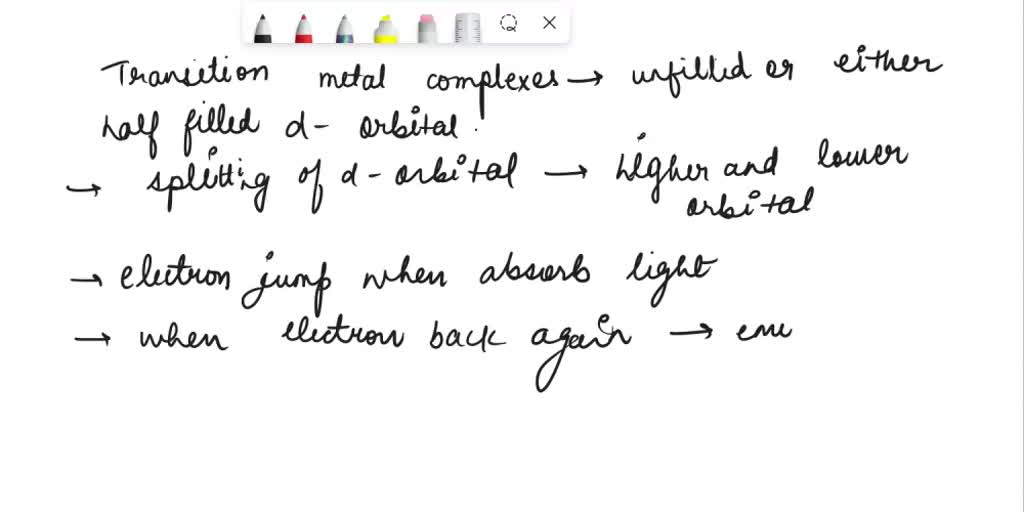 Transition metal complexes → unfilled or either
half filled d- orbital.
→ splitting of d- orbital → higher and lower
orbital
→ electron jump when absorb light
→ when electron back again → emi